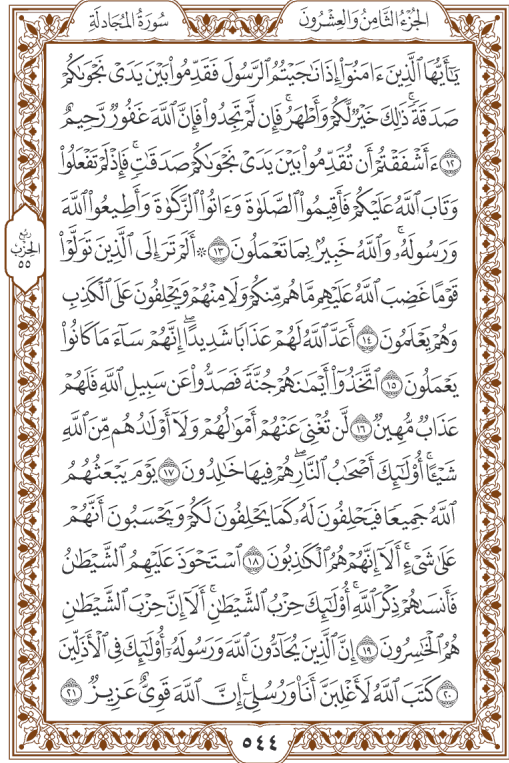 الجُزْءُ الثَّامِنُ وَالعِشْرُونَ
سُورَةُ المُجَادلَةِ
يَٰٓأَيُّهَا ٱلَّذِينَ ءَامَنُوٓاْ إِذَا نَٰجَيۡتُمُ ٱلرَّسُولَ فَقَدِّمُواْ بَيۡنَ يَدَيۡ نَجۡوَىٰكُمۡ
صَدَقَةٗۚ ذَٰلِكَ خَيۡرٞ لَّكُمۡ وَأَطۡهَرُۚ فَإِن لَّمۡ تَجِدُواْ فَإِنَّ ٱللَّهَ غَفُورٞ رَّحِيمٌ
١٢ ءَأَشۡفَقۡتُمۡ أَن تُقَدِّمُواْ بَيۡنَ يَدَيۡ نَجۡوَىٰكُمۡ صَدَقَٰتٖۚ فَإِذۡ لَمۡ تَفۡعَلُواْ
وَتَابَ ٱللَّهُ عَلَيۡكُمۡ فَأَقِيمُواْ ٱلصَّلَوٰةَ وَءَاتُواْ ٱلزَّكَوٰةَ وَأَطِيعُواْ ٱللَّهَ
وَرَسُولَهُۥۚ وَٱللَّهُ خَبِيرُۢ بِمَا تَعۡمَلُونَ ١٣ ۞ أَلَمۡ تَرَ إِلَى ٱلَّذِينَ تَوَلَّوۡاْ
قَوۡمًا غَضِبَ ٱللَّهُ عَلَيۡهِم مَّا هُم مِّنكُمۡ وَلَا مِنۡهُمۡ وَيَحۡلِفُونَ عَلَى ٱلۡكَذِبِ
وَهُمۡ يَعۡلَمُونَ ١٤ أَعَدَّ ٱللَّهُ لَهُمۡ عَذَابٗا شَدِيدًاۖ إِنَّهُمۡ سَآءَ مَا كَانُواْ
يَعۡمَلُونَ ١٥ ٱتَّخَذُوٓاْ أَيۡمَٰنَهُمۡ جُنَّةٗ فَصَدُّواْ عَن سَبِيلِ ٱللَّهِ فَلَهُمۡ
عَذَابٞ مُّهِينٞ ١٦ لَّن تُغۡنِيَ عَنۡهُمۡ أَمۡوَٰلُهُمۡ وَلَآ أَوۡلَٰدُهُم مِّنَ ٱللَّهِ
شَيۡـًٔاۚ أُوْلَٰٓئِكَ أَصۡحَٰبُ ٱلنَّارِۖ هُمۡ فِيهَا خَٰلِدُونَ ١٧ يَوۡمَ يَبۡعَثُهُمُ
ٱللَّهُ جَمِيعٗا فَيَحۡلِفُونَ لَهُۥ كَمَا يَحۡلِفُونَ لَكُمۡ وَيَحۡسَبُونَ أَنَّهُمۡ
عَلَىٰ شَيۡءٍۚ أَلَآ إِنَّهُمۡ هُمُ ٱلۡكَٰذِبُونَ ١٨ ٱسۡتَحۡوَذَ عَلَيۡهِمُ ٱلشَّيۡطَٰنُ
فَأَنسَىٰهُمۡ ذِكۡرَ ٱللَّهِۚ أُوْلَٰٓئِكَ حِزۡبُ ٱلشَّيۡطَٰنِۚ أَلَآ إِنَّ حِزۡبَ ٱلشَّيۡطَٰنِ
هُمُ ٱلۡخَٰسِرُونَ ١٩ إِنَّ ٱلَّذِينَ يُحَآدُّونَ ٱللَّهَ وَرَسُولَهُۥٓ أُوْلَٰٓئِكَ فِي ٱلۡأَذَلِّينَ
٢٠ كَتَبَ ٱللَّهُ لَأَغۡلِبَنَّ أَنَا۠ وَرُسُلِيٓۚ إِنَّ ٱللَّهَ قَوِيٌّ عَزِيزٞ ٢١
ربع
الحِزْب
٥٥
٥٤٤